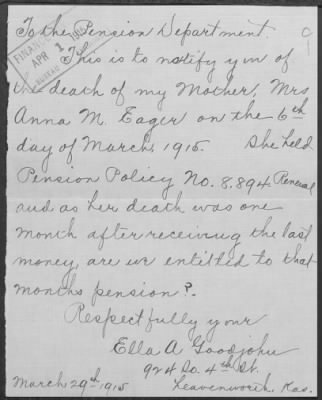 To the Pension Department.
FINANCE
APR 1
BUREAU
This is to notify you of
the death of my Mother, Mrs
Anna M. Eager on the 6th
day of March, 1915. She held
Pension Policy No. 8.894
and as her death was one
month after receiving the last
money, are we entitled to that
months pension?.
Respectfully your
Ella A Goodjohn
924 So. 4th St.
March 29th 1915 Leavenworth. Kas.